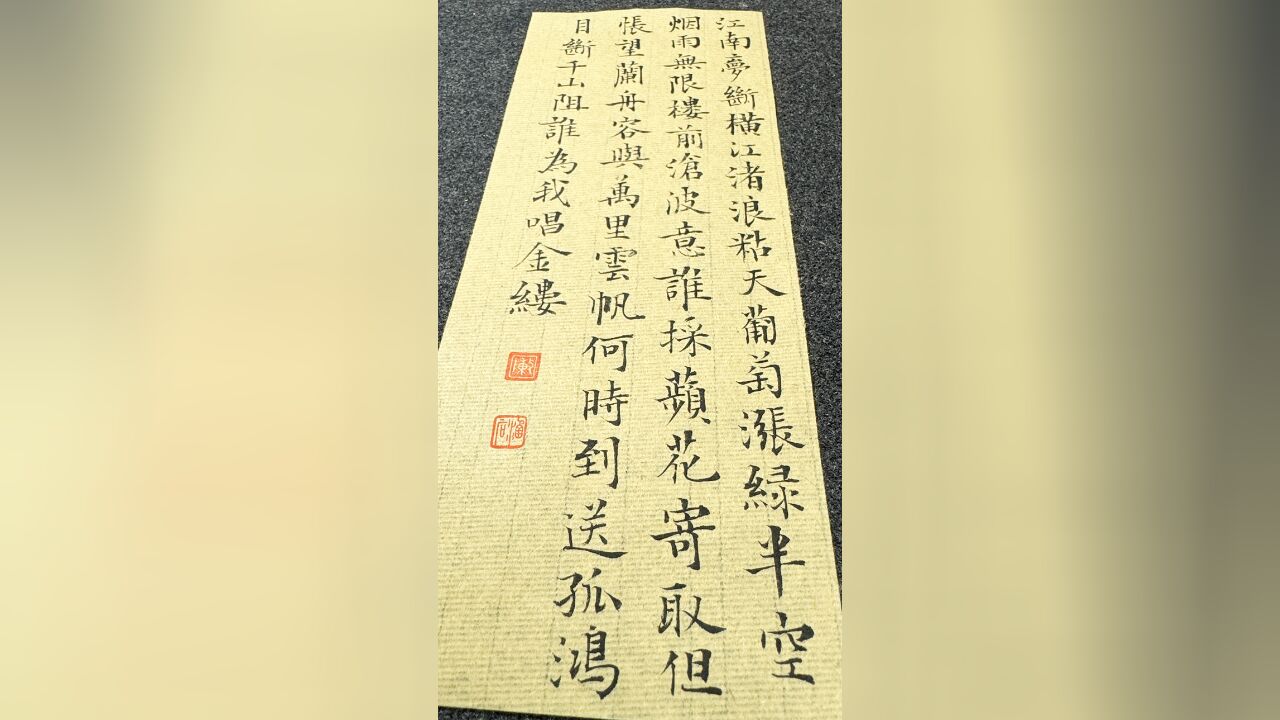 江南夢斷橫江渚浪粘天葡萄漲綠半空
烟雨無限樓前滄波意誰採蘋花寄取但
悵望蘭舟容與萬里雲帆何時到送孤鴻
目斷千山阻誰為我唱金縷